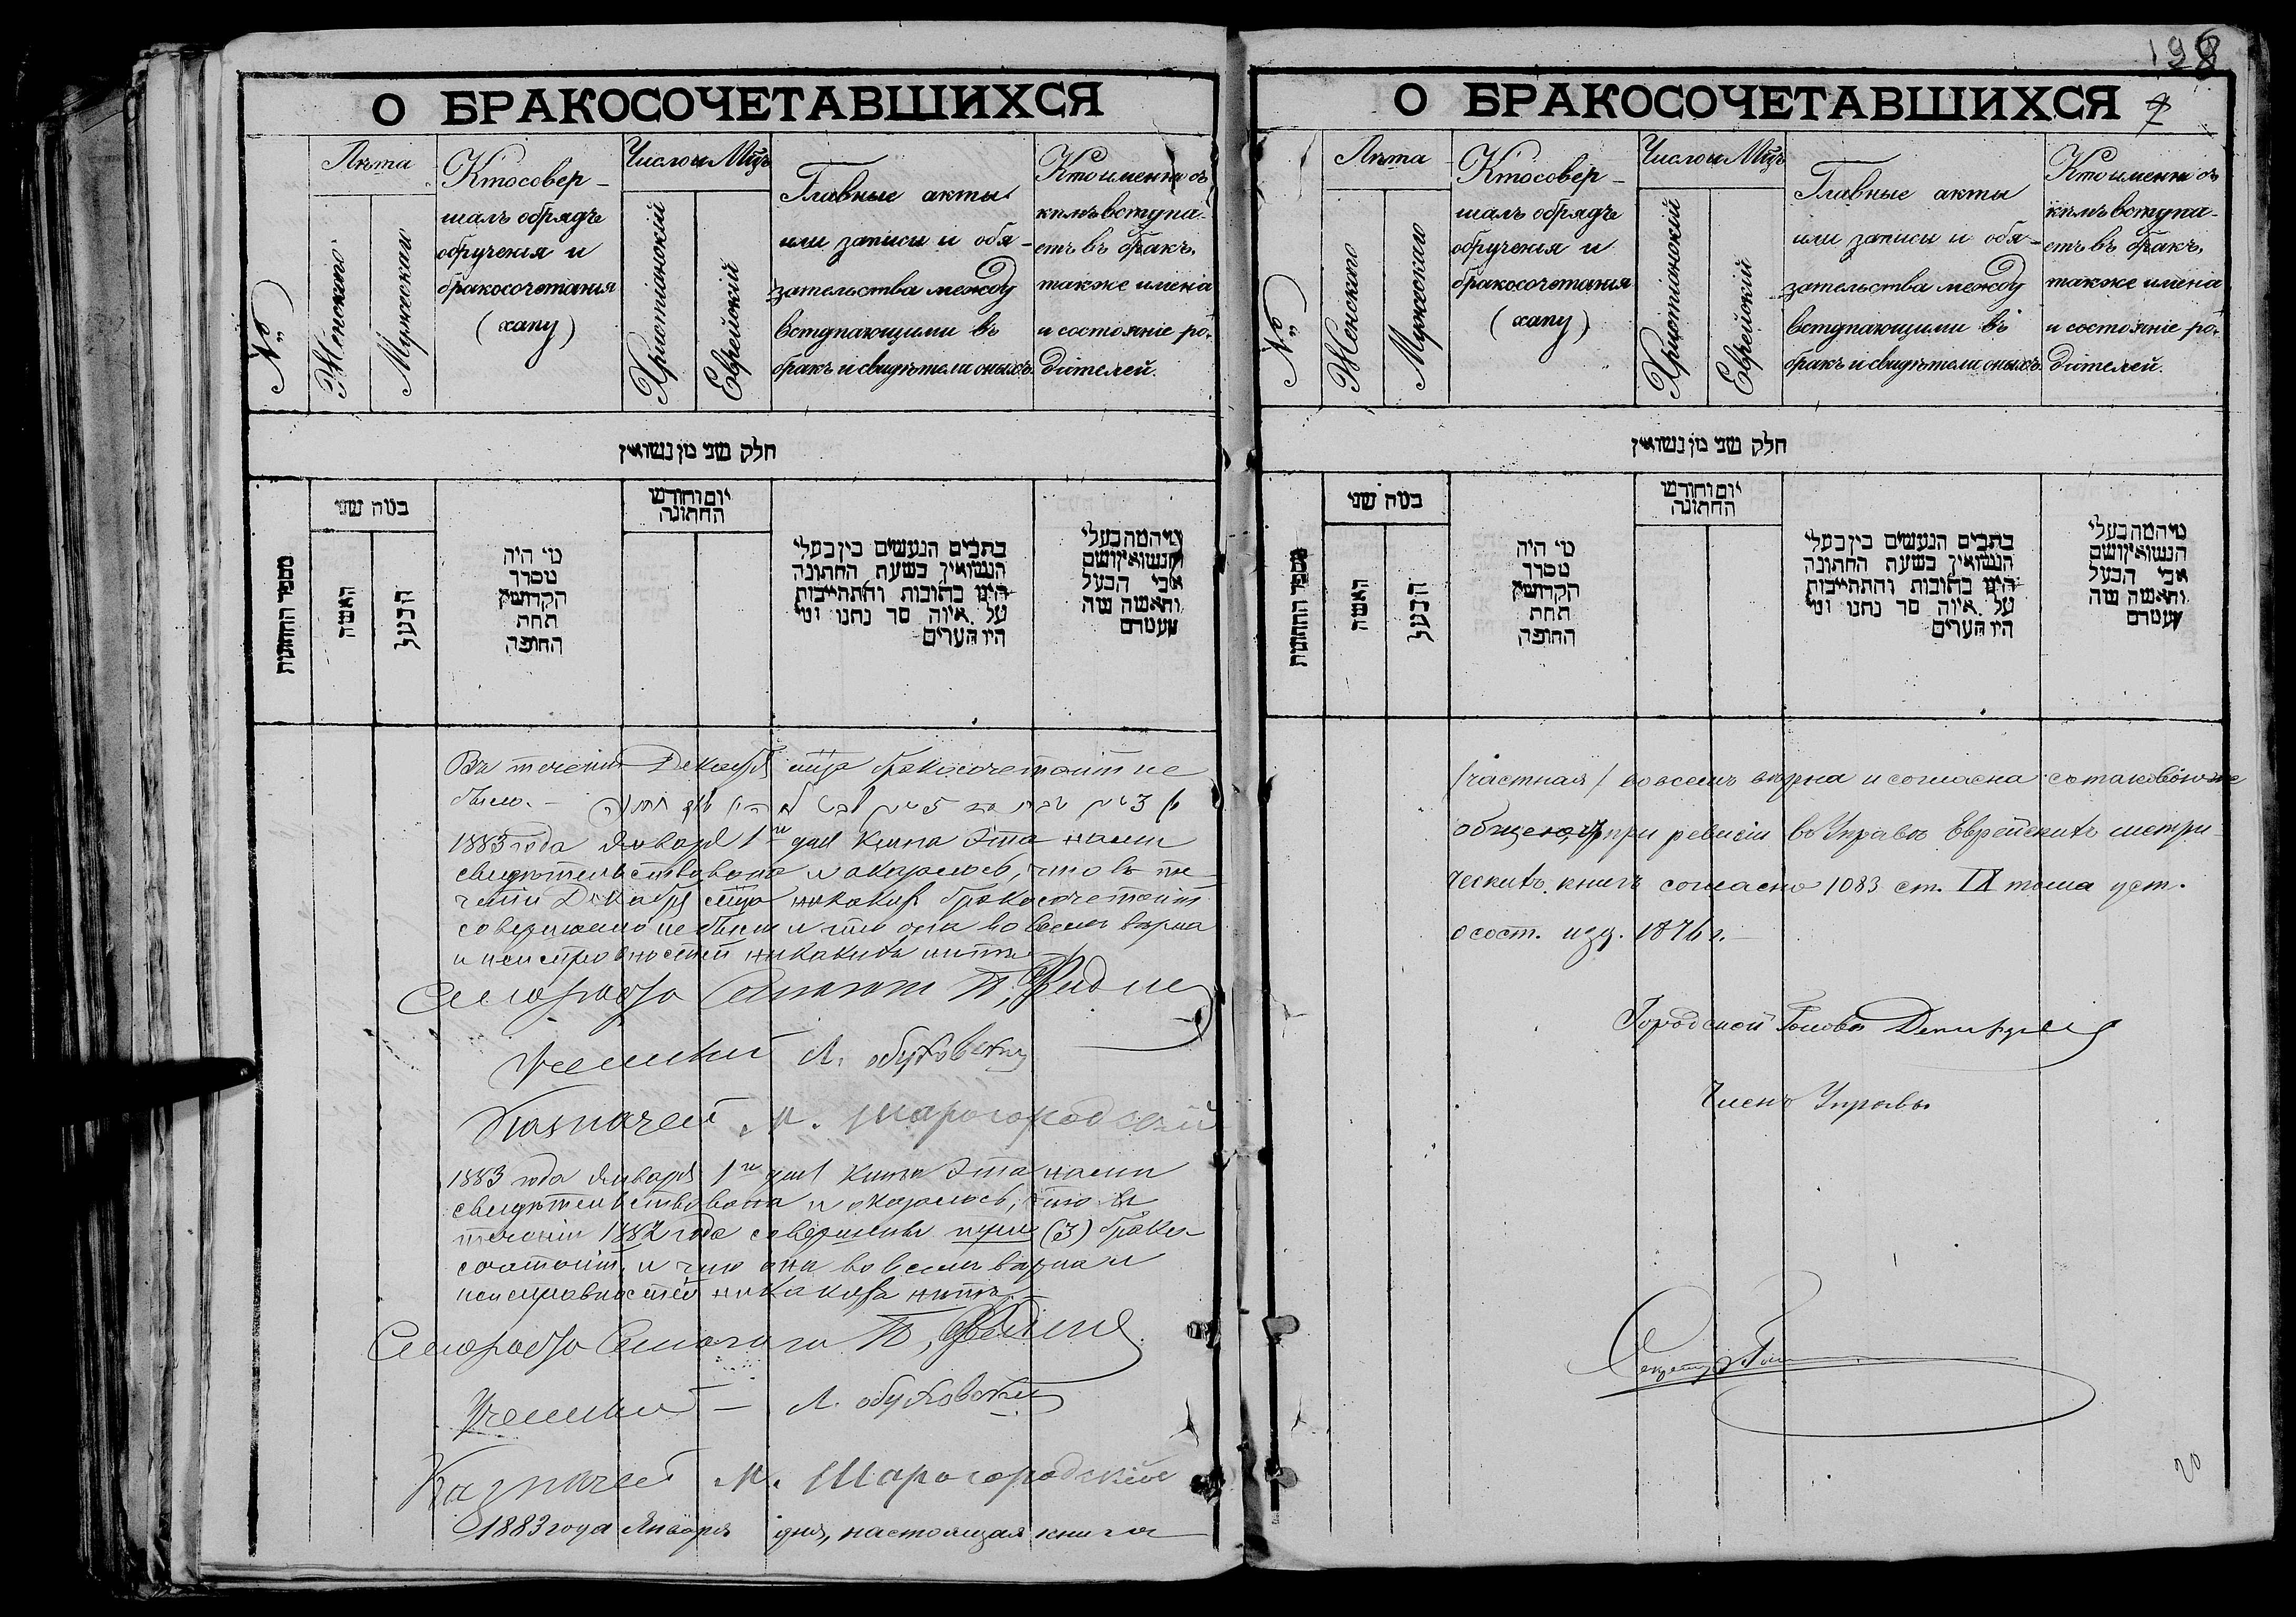 О БРАКОСОЧЕТАВШИХСЯ
№
Лѣта
Женскаго
Мужскаго
Кто совер-
шалъ обрядъ
обрученія и
бракосочетанія
(хапу)
Число и Мѣць
Христіанскій
Еврейскій
Главные акты
или записи и обя-
зательства между
вступающими въ
бракъ и свидѣтели оныхъ.
Кто именно съ
кѣмъ вступа-
етъ въ бракъ,
также имена
и состояніе ро-
дителей.
חלק שני מן נשואין
מספר החתונות
כמה שני
האשה
הבעל
מי היה
מסדר
הקדושין
תחת
החופה
יום וחודש
החתונה
כתבים הנעשים בין בעלי
הנשואין בשעת החתונה
היינו כתובות והתחייבות
על איזה סך נתנו ומי
היו העדים
מי המה בעלי
הנשואין ושם
אבי הבעל
והאשה ומה
מעמדם
Въ теченіи Декабря мца бракосочетаній не
было. —
1883 года Января 1го дня Книга Эта нами
свидѣтельствована и оказалось, что въ те-
чении Декабря мца никакихъ бракосочетаній
совершено не было и что она во всемъ вѣрна
и неисправностей никакихъ нѣтъ
Ученный Л. Обуховскій
Казначей М. Шарогородскій
1883 года Января 1го дня Книга Эта нами
свидѣтельствована и оказалось, что въ
теченіи 1882 года совершены три (3) брако-
сочетаній, и что она во всемъ вѣрна и
неисправностей никакихъ нѣтъ
Ученный — Л. Обуховскій
Казначей М. Шарогородскій
1883 года Января дня, настоящая книга
198
О БРАКОСОЧЕТАВШИХСЯ
№
Лѣта
Женскаго
Мужскаго
Кто совер-
шалъ обрядъ
обрученія и
бракосочетанія
(хапу)
Число и Мѣць
Христіанскій
Еврейскій
Главные акты
или записи и обя-
зательства между
вступающими въ
бракъ и свидѣтели оныхъ.
Кто именно съ
кѣмъ вступа-
етъ въ бракъ,
также имена
и состояніе ро-
дителей.
חלק שני מן נשואין
מספר החתונות
כמה שני
האשה
הבעל
מי היה
מסדר
הקדושין
תחת
החופה
יום וחודש
החתונה
כתבים הנעשים בין בעלי
הנשואין בשעת החתונה
היינו כתובות והתחייבות
על איזה סך נתנו ומי
היו העדים
מי המה בעלי
הנשואין ושם
אבי הבעל
והאשה ומה
מעמדם
/частная/ во всемъ вѣрна и согласна съ таковою же
общею при ревизіи въ Управѣ Еврейскихъ метри-
ческихъ книгъ согласно 1083 ст. IX тома уст.
о сост. изд. 1876 г. —
Городской Голова
Членъ Управы
Секретарь
20